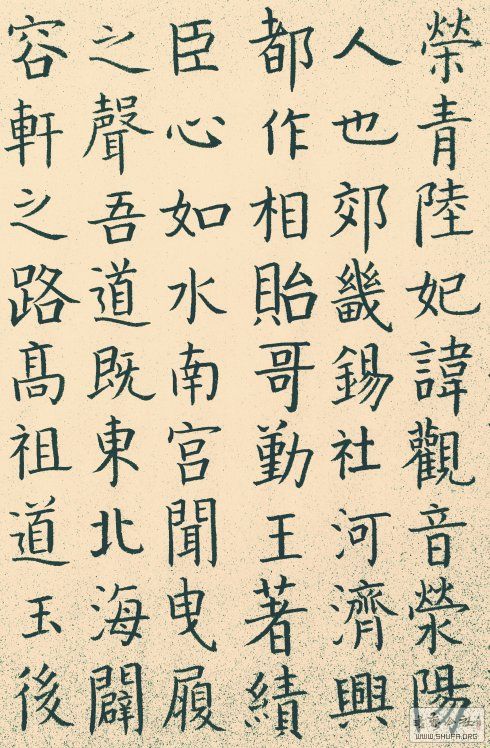 榮青陸妃諱觀音滎陽
人也郊畿錫社河濟興
都作相貽哥勤王著績
臣心如水南宮聞曳履
之聲吾道既東北海闢
容軒之路髙祖道玉後
WWW.SHUFA.ORG